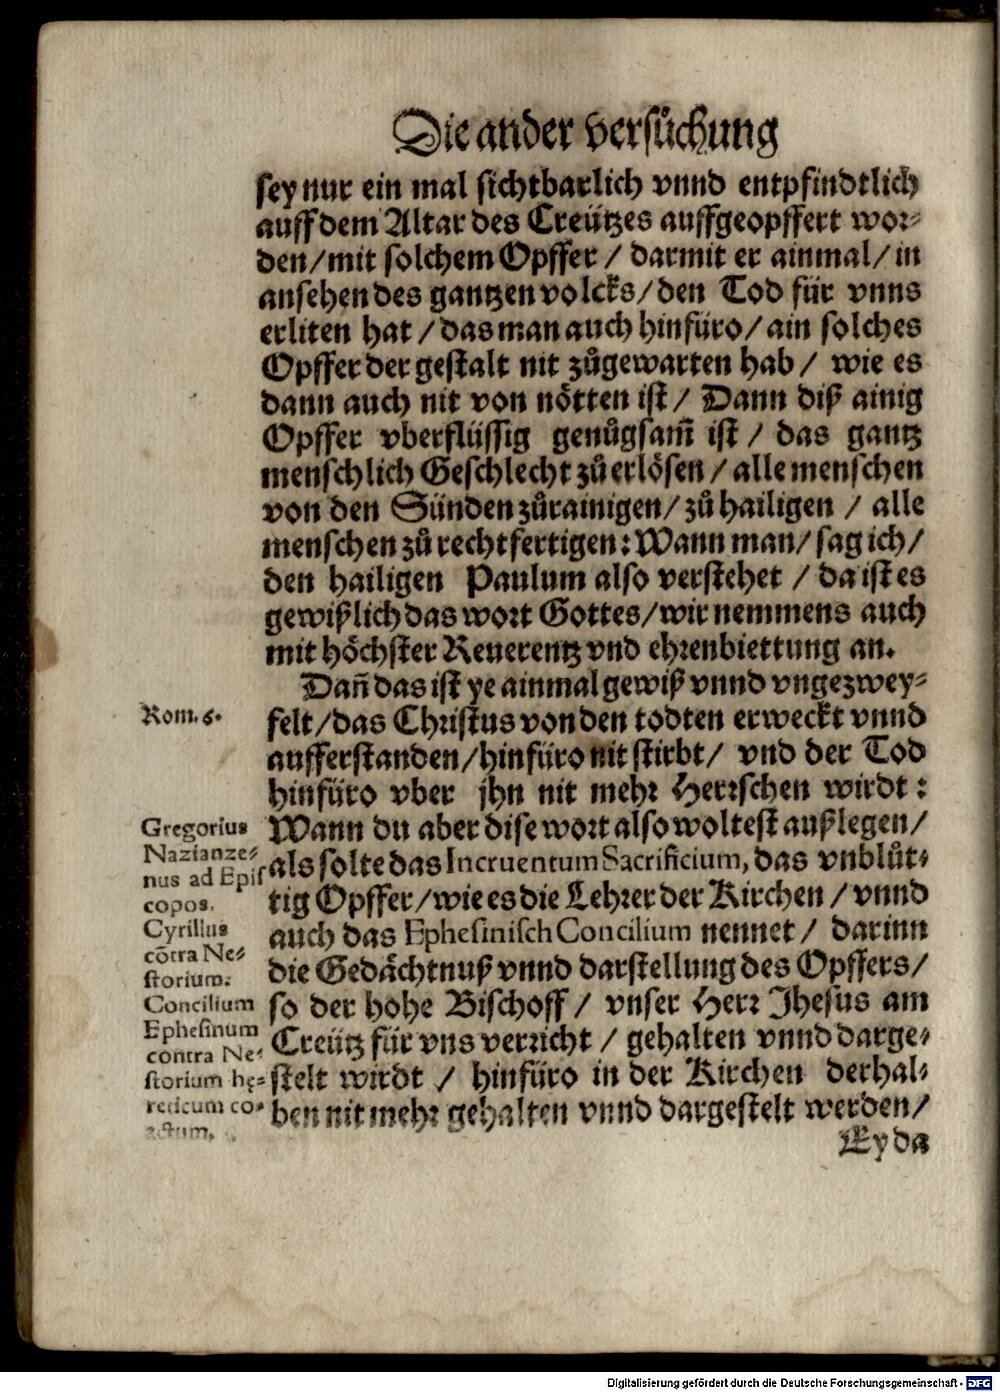 Die ander versůchung
sey nur ein mal sichtbarlich vnnd entpfindtlich
auff dem Altar des Creützes auffgeopffert wor⸗
den/mit solchem Opffer / darmit er ainmal/ in
ansehen des gantzen volcks/den Tod für vnns
erliten hat /das man auch hinfüro/ ain solches
Opffer der gestalt nit zůgewarten hab / wie es
dann auch nit von nötten ist / Dann diß ainig
Opffer vberflüssig genůgsam̃ ist / das gantz
menschlich Geschlecht zů erlösen / alle menschen
von den Sünden zůrainigen/ zů hailigen / alle
menschen zů rechtfertigen: Wann man/ sag ich/
den hailigen Paulum also verstehet / da ist es
gewißlich das wort Gottes/wir nemmens auch
mit höchster Reuerentz vnd ehrenbiettung an.
Dañ das ist ye ainmal gewiß vnnd vngezwey⸗
Rom. 6.
felt/das Christus von den todten erweckt vnnd
aufferstanden/hinfüro nit stirbt/ vnd der Tod
hinfüro vber jhn nit mehr Herrschen wirdt:
Wann du aber dise wort also woltest außlegen/
als solte das Incruentum Sacrificium, das vnblůt⸗
tig Opffer/wie es die Lehrer der Kirchen / vnnd
auch das Ephesinisch Concilium nennet / darinn
die Gedächtnuß vnnd darstellung des Opffers/
so der hohe Bischoff / vnser Herr Jhesus am
Creütz für vns verricht / gehalten vnnd darge⸗
stelt wirdt / hinfüro in der Kirchen derhal⸗
ben nit mehr gehalten vnnd dargestelt werden/
Gregorius
Nazianze⸗
nus ad Epis
copos.
Cyrillus
cõtra Ne⸗
storium.
Concilium
Ephesinum
contra Ne⸗
storium hę⸗
reticum co⸗
actum.
Ey da
Digitalisierung gefördert durch die Deutsche Forschungsgemeinschaft - DFG